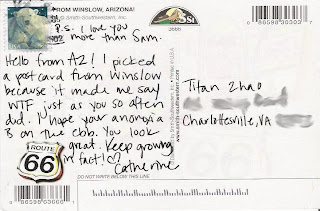 FROM WINSLOW, ARIZONA!
P.S. I love you
more than Sam.
Hello from AZ! I picked
a postcard from Winslow
because it made me say
WTF just as you so often
did. I hope your anorexia
is on the ebb. You look
great. Keep growing
in fact!
Catherine
Titan Zhao
Charlottesville, VA
ROUTE
66
DO NOT WRITE BELOW THIS LINE
www.smith-southwestern.com